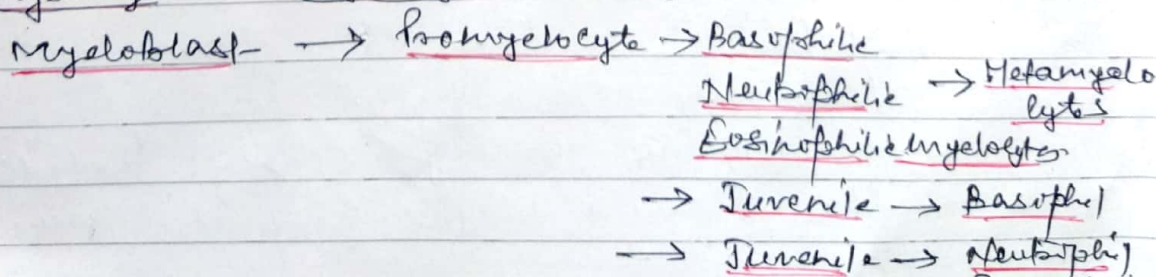 Myeloblast → Promyelocyte → Basophilic
Neutrophilic → Metamyelo
cytes
Eosinophilic myelocytes
→ Juvenile → Basophil
→ Juvenile → Neutrophil